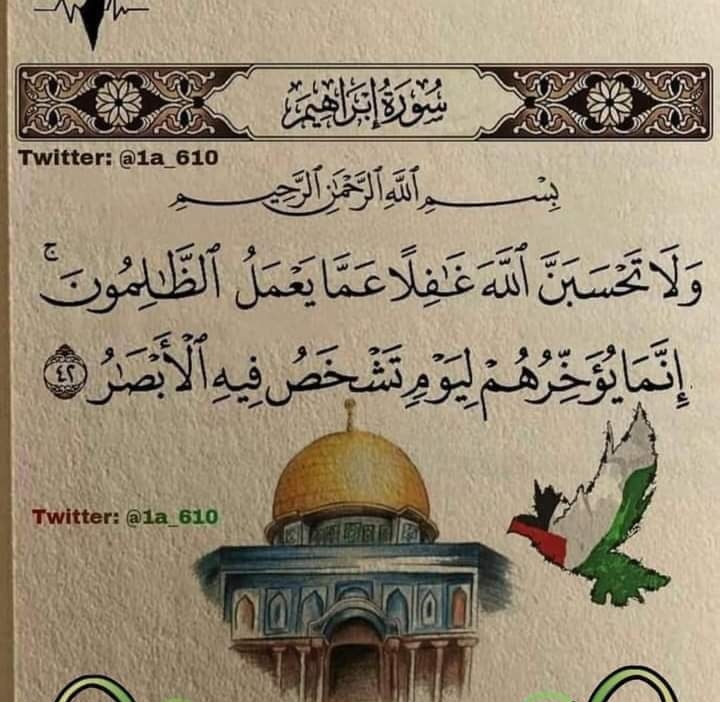 سُورَةُ إِبۡرَاهِيمَ
Twitter: @1a_610
بِسۡمِ ٱللَّهِ ٱلرَّحۡمَٰنِ ٱلرَّحِيمِ
وَلَا تَحۡسَبَنَّ ٱللَّهَ غَٰفِلًا عَمَّا يَعۡمَلُ ٱلظَّٰلِمُونَۚ
إِنَّمَا يُؤَخِّرُهُمۡ لِيَوۡمٖ تَشۡخَصُ فِيهِ ٱلۡأَبۡصَٰرُ ٤٢
Twitter: @1a_610